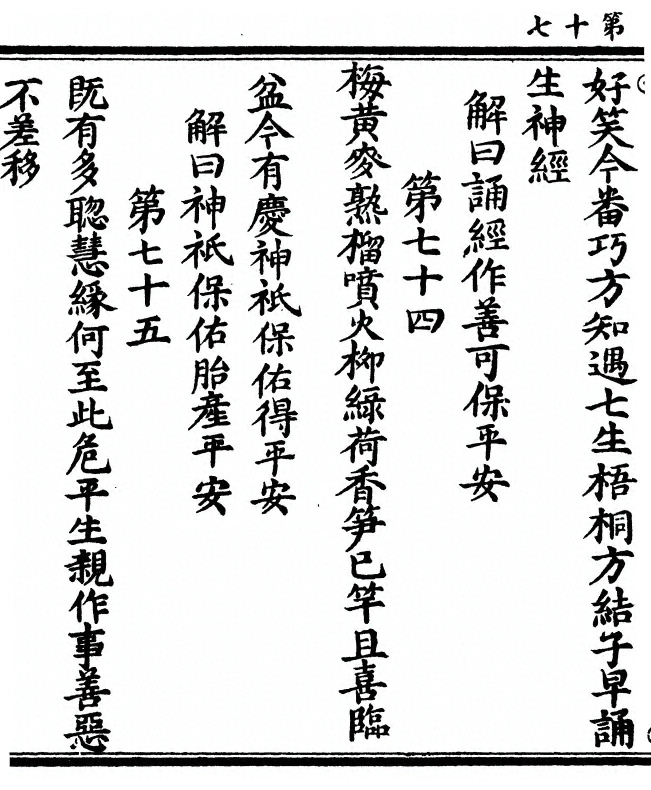 第十七
好笑今番巧方知遇七生梧桐方結子早誦
生神經
解曰誦經作善可保平安
第七十四
梅黃麥熟榴噴火柳綠荷香笋已竿且喜臨
盆今有慶神祇保佑得平安
解曰神祇保佑胎產平安
第七十五
既有多聰慧緣何至此危平生親作事善惡
不差移